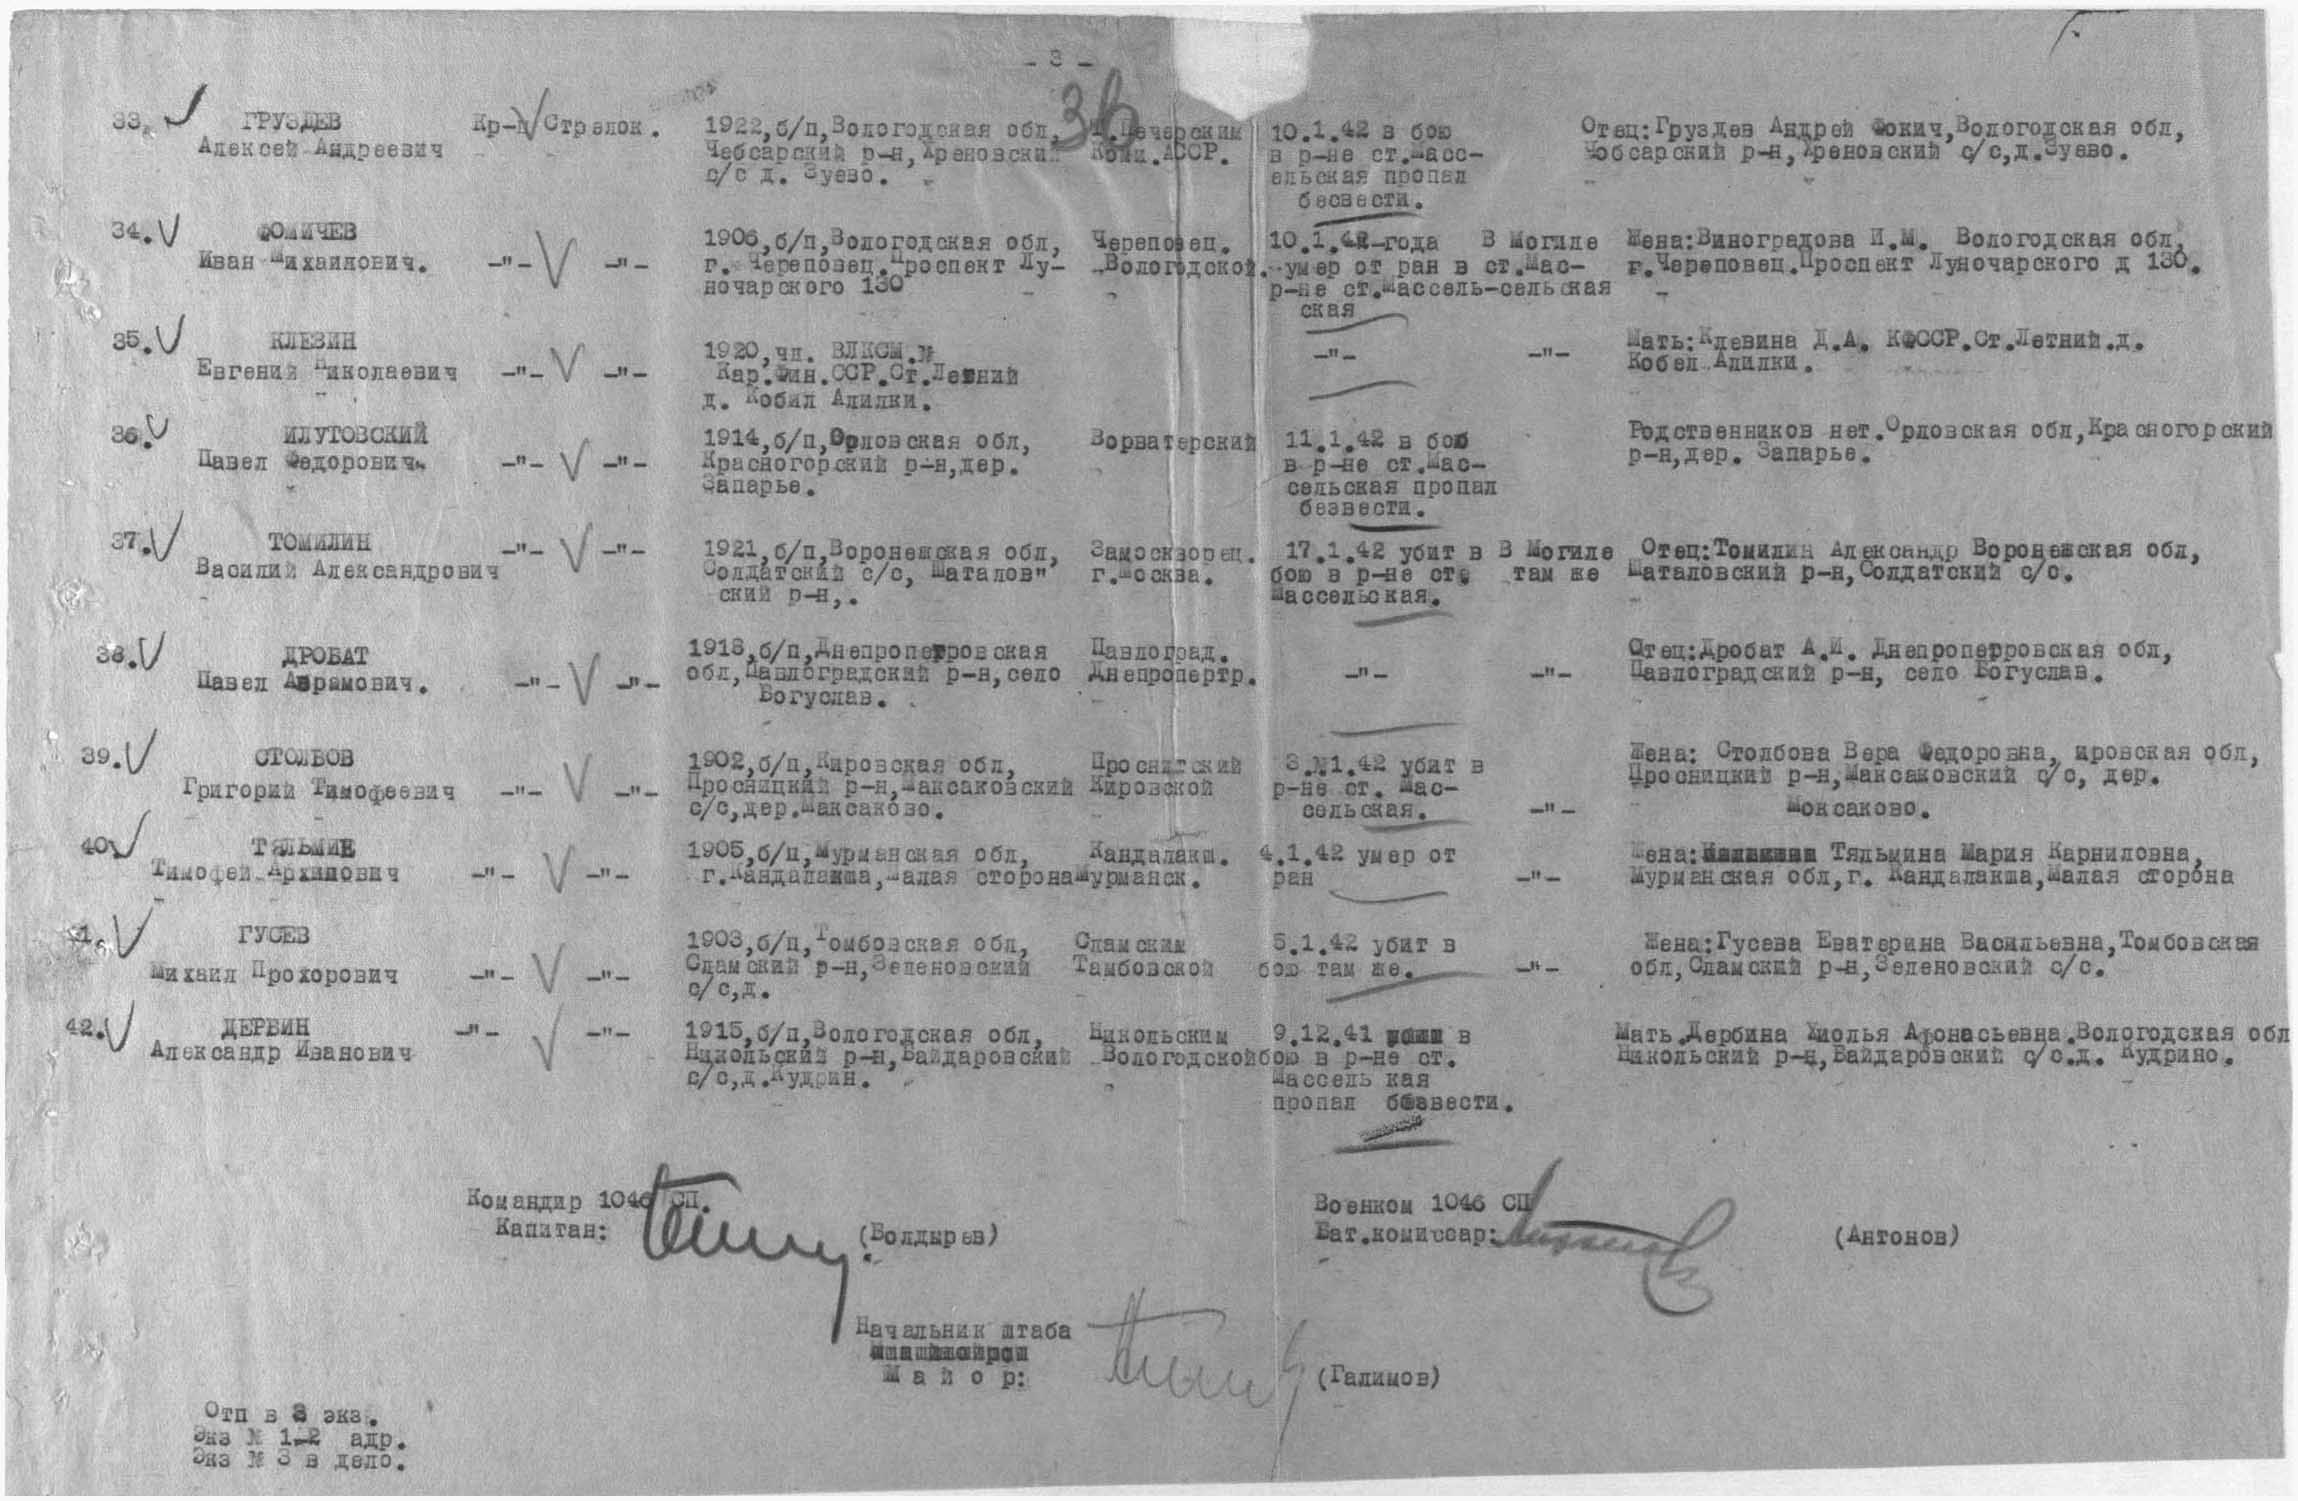 - 3 -
33. ГРУЗДЕВ Кр-ц Стрелок. 1922,б/п,Вологодская обл, 10.1.42 в бою Отец:Груздев Андрей Фокич,Вологодская обл,
Алексей Андреевич Чебсарский р-н,Ареновский Коми.АССР. в р-не ст.Масс- Чобсарский р-н,Ареновский с/с,д.Зуево.
с/с д. Зуево. ельская пропал
бесвести.
34. ФОМИЧЕВ 1906,б/п,Вологодская обл, Череповец. 10.1.42 года В Могиле Жена:Виноградова И.М. Вологодская обл,
Иван Михаилович. -"- -"- г. Череповец.Проспект Лу- Вологодской. умер от ран в ст.Мас- г.Череповец.Проспект Луночарского д 130.
ночарского 130 р-не ст.Массель-сельская
ская
35. КЛЕЗИН 1920,чл. ВЛКСМ. -"- -"- Мать:Клевина Д.А. КФССР.Ст.Летний.д.
Евгений Николаевич -"- -"- Кар.Фин.ССР.Ст.Летний Кобел Алилки.
д. Кобил Алилки.
36. ИЛУТОВСКИЙ 1914,б/п,Орловская обл, Ворватерский 11.1.42 в бою Родственников нет.Орловская обл,Красногорский
Павел Федорович. -"- -"- Красногорский р-н,дер. в р-не ст.Мас- р-н,дер. Запарье.
Запарье. сельская пропал
безвести.
37. ТОМИЛИН -"- -"- 1921,б/п,Воронежская обл, Замоскворец. 17.1.42 убит в В Могиле Отец:Томилин Александр Воронежская обл,
Василий Александрович Солдатский с/с, Шаталов" г.Москва. бою в р-не ст. там же Шаталовский р-н,Солдатский с/с.
ский р-н,. Массельская.
38. ДРОБАТ 1918,б/п,Днепропетровская Павлоград. Отец:Дробат А.И. Днепропетровская обл,
Павел Аврамович. -"- -"- обл,Павлоградский р-н,село Днепропертр. -"- -"- Павлоградский р-н, село Богуслав.
Богуслав.
39. СТОЛБОВ 1902,б/п,Кировская обл, Проснитский 3.1.42 убит в Жена: Столбова Вера Федоровна, ировская обл,
Григорий Тимофеевич -"- -"- Просницкий р-н,Максаковский Кировской р-не ст. Мас- Просницкий р-н,Максаковский с/с, дер.
с/с,дер.Максаково. сельская. -"- Моксаково.
40. ТЯЛЬМИН 1905,б/п,Мурманская обл, Кандалакш. 4.1.42 умер от Жена: Тяльмина Мария Карниловна,
Тимофей Архипович -"- -"- г.Кандалакша,Малая сторона Мурманск. ран -"- Мурманская обл,г. Кандалакша,Малая сторона
41. ГУСЕВ 1903,б/п,Томбовская обл, Сламским 5.1.42 убит в Жена:Гусева Еватерина Васильевна,Томбовская
Михаил Прохорович -"- -"- Сламский р-н,Зеленовский Тамбовской бою там же. -"- обл,Сламский р-н,Зеленовский с/с.
с/с,д.
42. ДЕРБИН -"- -"- 1915,б/п,Вологодская обл, Никольским 9.12.41 в Мать.Дербина Хиолья Афонасьевна.Вологодская обл
Александр Иванович Никольский р-н,Байдаровский Вологодской бою в р-не ст. Никольский р-н,Байдаровский с/с.д. Кудрино.
с/с,д.Кудрин. Массель кая
пропал безвести.
Командир 1046 СП. Военком 1046 СП
Капитан: (Болдырев) Бат.комиссар: (Антонов)
Начальник штаба
Майор: (Галимов)
Отп в 3 экз.
Экз № 1-2 адр.
Экз № 3 в дело.